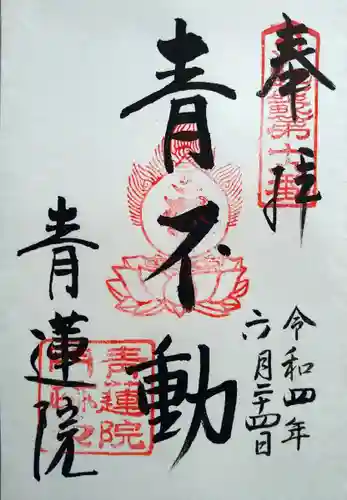 奉拝
青不動
令和四年
六月二十四日
青蓮院